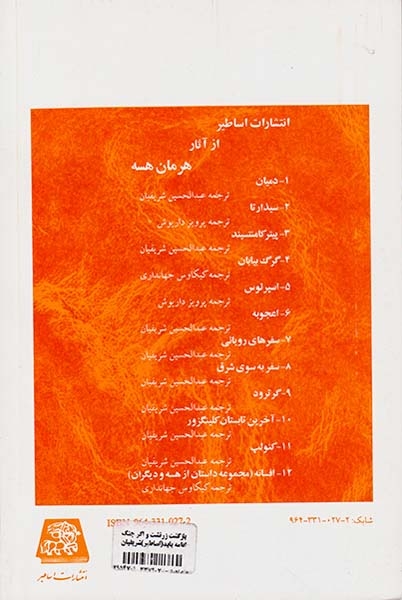 انتشارات اساطیر
از آثار
هرمان هسه
۱- دمیان
ترجمه عبدالحسین شریفیان
۲- سیدارتا
ترجمه پرویز داریوش
۳- پیترکامنتسیند
ترجمه عبدالحسین شریفیان
۴- گرگ بیابان
ترجمه کیکاوس جهانداری
۵- اسپرلوس
ترجمه پرویز داریوش
۶- اعجوبه
ترجمه عبدالحسین شریفیان
۷- سفرهای رویائی
ترجمه عبدالحسین شریفیان
۸- سفر به سوی شرق
ترجمه عبدالحسین شریفیان
۹- گرترود
ترجمه عبدالحسین شریفیان
۱۰- آخرین تابستان کلینگزور
ترجمه عبدالحسین شریفیان
۱۱- کنولپ
ترجمه عبدالحسین شریفیان
۱۲- افسانه (مجموعه داستان از هسه و دیگران)
ترجمه کیکاوس جهانداری
شابک: ۲-۰۲۷-۳۳۱-۹۶۴
ISBN 964-331-027-2
بازگشت زرتشت و اگر جنگ
ادامه یابد(اساطیر)شریفیان
انتشارات اساطیر